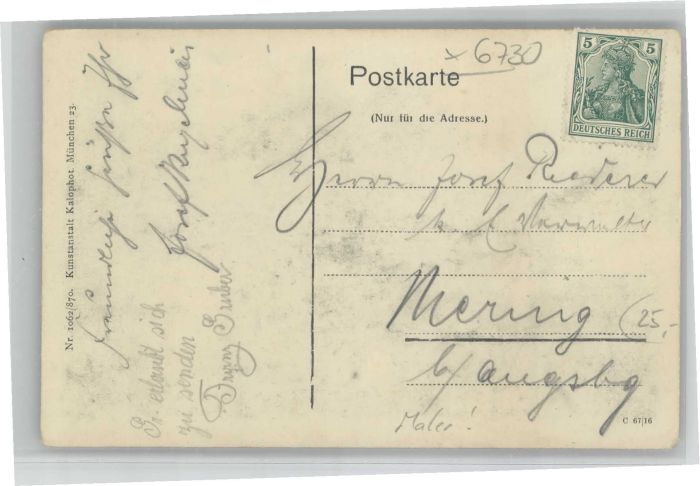 Postkarte
(Nur für die Adresse.)
x 6730
5 5
DEUTSCHES REICH
Herrn Josef Riederer
k. Verwalter
Mering
b/ Augsbg
(25,-
Maler!
C 67|16
Nr. 1062/870. Kunstanstalt Kalophot München 23.
Freundliche Grüße Ihr
Josef
Gr. erlaubt sich
zu senden
Franz Gruber